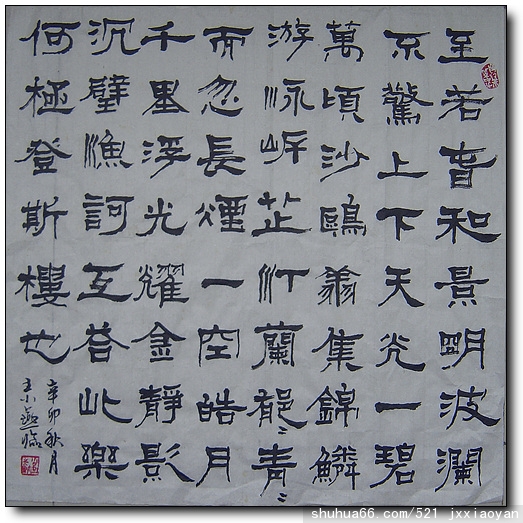 至若旾和景明波瀾
不驚上下天光一碧
萬頃沙鷗翔集錦鱗
游泳岸芷汀蘭郁〻青〻
而忽長煙一空皓月
千里浮光耀金靜影
沉璧漁訶互答此樂
何極登斯樓也
辛卯秋月
臨
shuhua66.com/521 jxxiaoyan